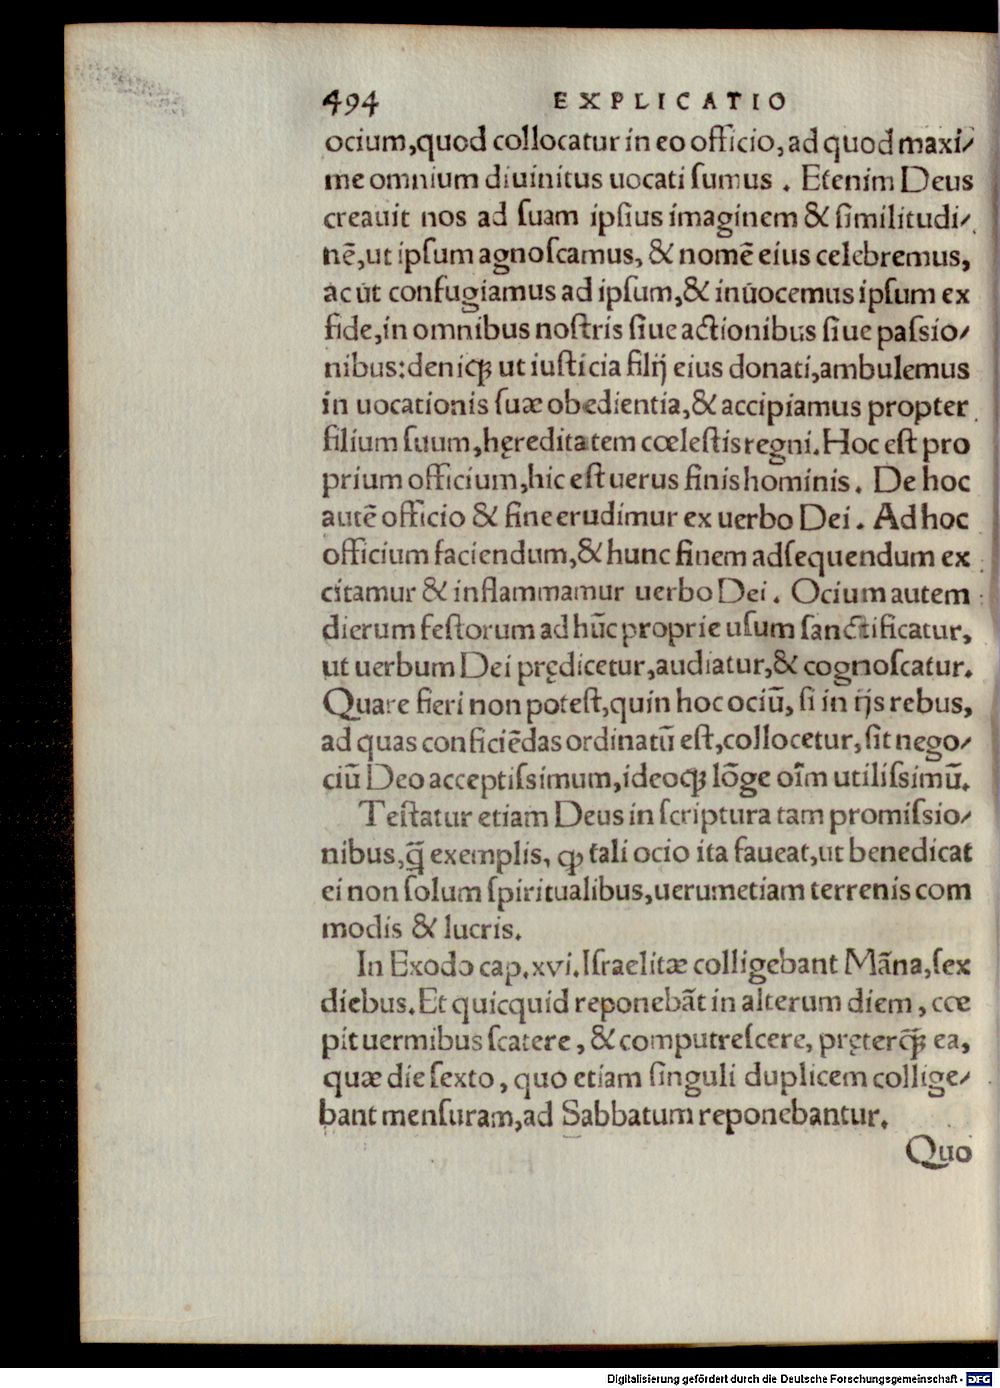 494 EXPLICATIO
ocium, quod collocatur in eo officio, ad quod maxi⸗
me omnium diuinitus uocati ſumus . Etenim Deus
creauit nos ad ſuam ipſius imaginem & ſimilitudi⸗
nē, ut ipſum agnoſcamus, & nomē eius celebremus,
ac ut confugiamus ad ipſum, & inuocemus ipſum ex
fide, in omnibus noſtris ſiue actionibus ſiue paſsio⸗
nibus: deniqꝫ ut iuſticia filij eius donati, ambulemus
in uocationis ſuæ obedientia, & accipiamus propter
filium ſuum, hęreditatem cœleſtis regni. Hoc eſt pro
prium officium, hic eſt uerus finis hominis . De hoc
autē officio & fine erudimur ex uerbo Dei . Ad hoc
officium faciendum, & hunc finem adſequendum ex
citamur & inflammamur uerbo Dei . Ocium autem
dierum feſtorum ad hūc proprie uſum ſanctificatur,
ut uerbum Dei prędicetur, audiatur, & cognoſcatur.
Quare fieri non poteſt, quin hoc ociū, ſi in ijs rebus,
ad quas conficiēdas ordinatū eſt, collocetur, ſit nego⸗
ciū Deo acceptiſsimum, ideoqꝫ lōge oīm utiliſsimū.
Teſtatur etiam Deus in ſcriptura tam promiſsio⸗
nibus, q̄ exemplis, ꝙ tali ocio ita faueat, ut benedicat
ei non ſolum ſpiritualibus, uerumetiam terrenis com
modis & lucris.
In Exodo cap. xvi. Iſraelitæ colligebant Māna, ſex
diebus. Et quicquid reponebāt in alterum diem , cœ
pit uermibus ſcatere , & computreſcere, pręterq̄ꝫ ea,
quæ die ſexto , quo etiam ſinguli duplicem collige⸗
bant menſuram, ad Sabbatum reponebantur.
Quo
Digitalisierung gefördert durch die Deutsche Forschungsgemeinschaft - DFG